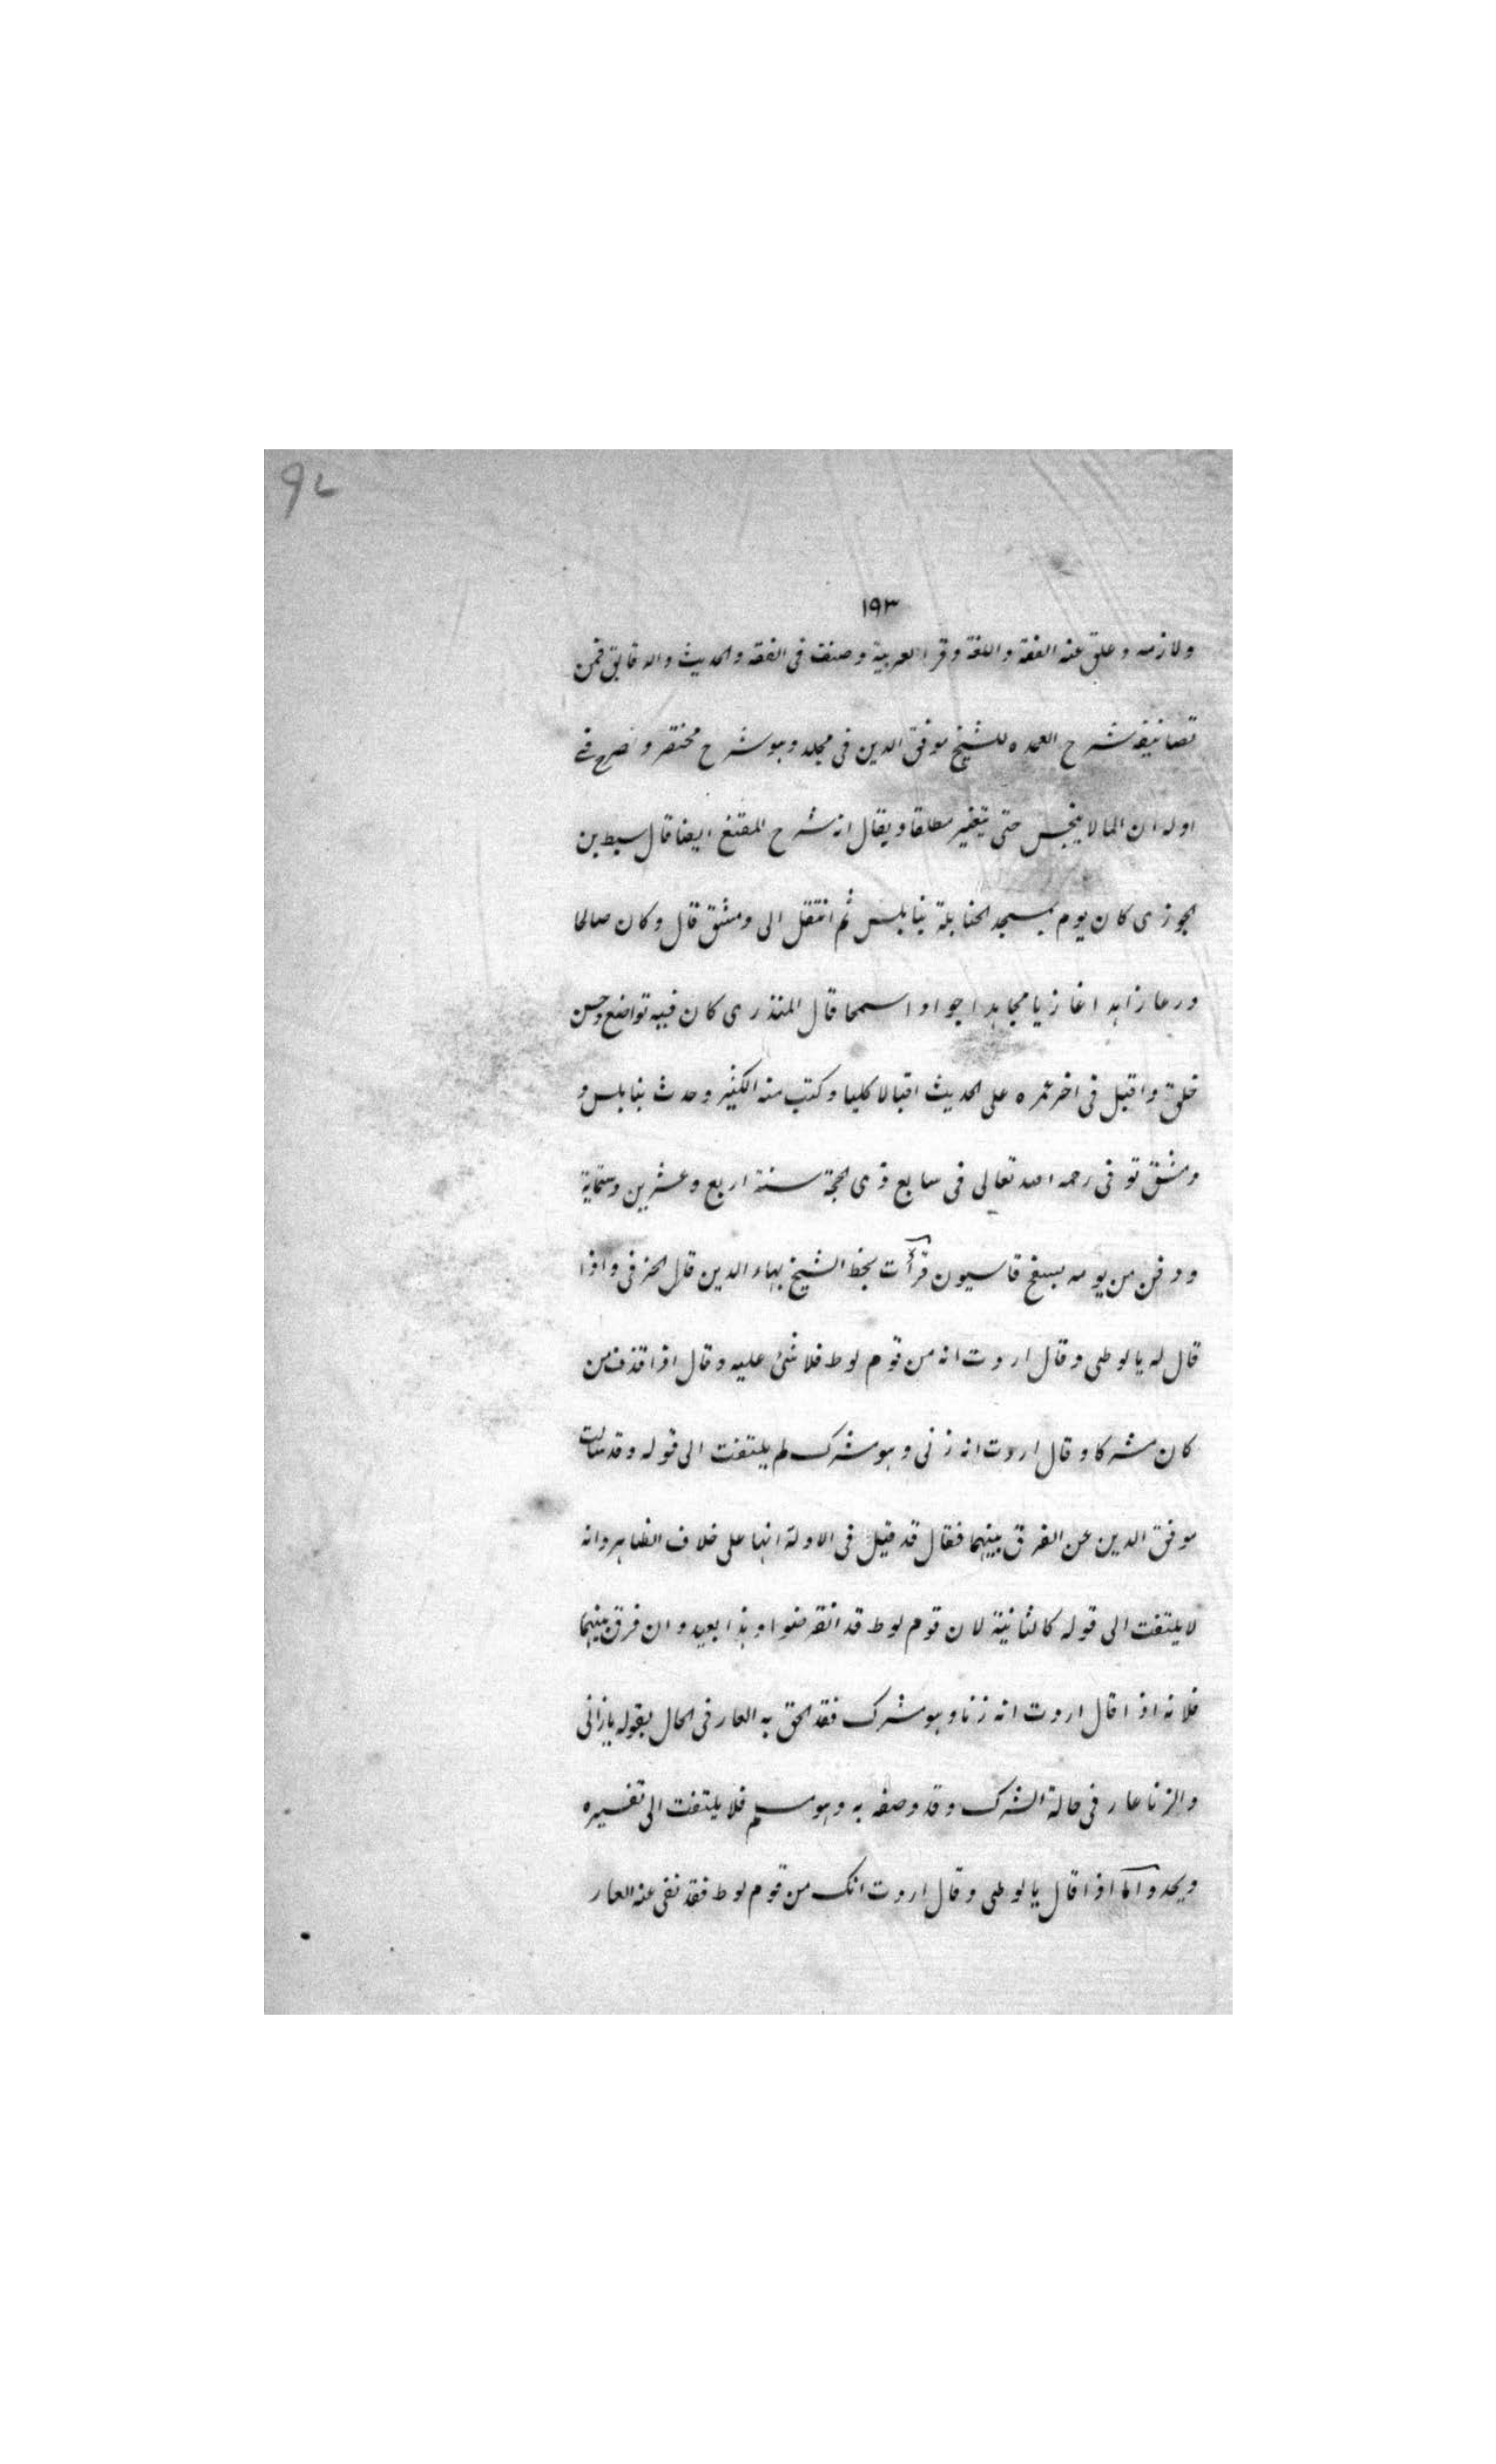 ٩٧
١٩٣
ولازمه وعلق عنه الفقه واللغة وقرا العربية وصنف فى الفقه والحديث والدقايق فمن
تصانيفه شرح العمده للشيخ موفق الدين فى مجلد وهو شرح مختصر وصرح فے
اوله ان الما لا ينجس حتى يتغير مطلقا ويقال انه شرح المقنع ايضا قال سبط بن
الجوزى كان يوم بمسجد الحنابلة بنابلس ثم انتقل الى دمشق قال وكان صالحا
ورعا زاهدا غازيا مجاهدا جوادا سمحا قال المنذرى كان فيه تواضع وحسن
خلق واقبل فى اخر عمره على الحديث اقبالا كليا وكتب منه الكثير وحدث بنابلس و
دمشق توفى رحمه الله تعالى فى سابع ذى الحجة سنة اربع وعشرين وستماية
ودفن من يومه بسفح قاسيون قرأت بخط الشيخ بهاء الدين قال الخرقى واذا
قال له يا لوطى وقال اردت انه من قوم لوط فلا شئ عليه وقال اذا قذف من
كان مشركا وقال اردت انه زنى وهو مشرك لم يلتفت الى قوله وقد سالت
موفق الدين عن الفرق بينهما فقال قد قيل فى الاولة انها على خلاف الظاهر وانه
لا يلتفت الى قوله كالثانية لان قوم لوط قد انقرضوا وهذا بعيد وان فرق بينهما
فلانه اذا قال اردت انه زنا وهو مشرك فقد الحق به العار فى الحال بقوله يا زانى
والزنا عار فى حالة الشرك وقد وصفه به وهو مسلم فلا يلتفت الى تفسيره
ويحد واما اذا قال يا لوطى وقال اردت انك من قوم لوط فقد نفى عنه العار